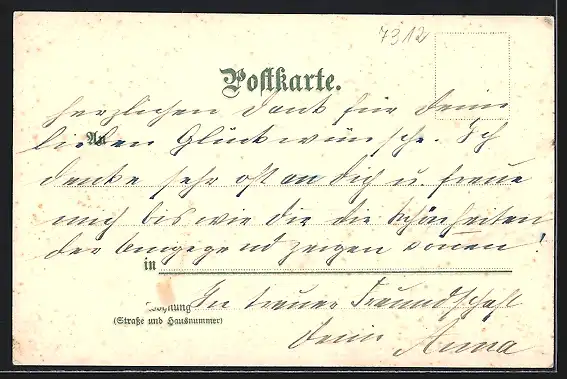 7312
Postkarte.
herzlichen Dank für Deine
An
lieben Glückwünsche. Ich
denke sehr oft an Dich u. freue
mich bis wir Dir die Schönheiten
der Umgegend zeigen können!
in
Wohnung
In treuer Freundschaft
(Straße und Hausnummer)
Deine Anna